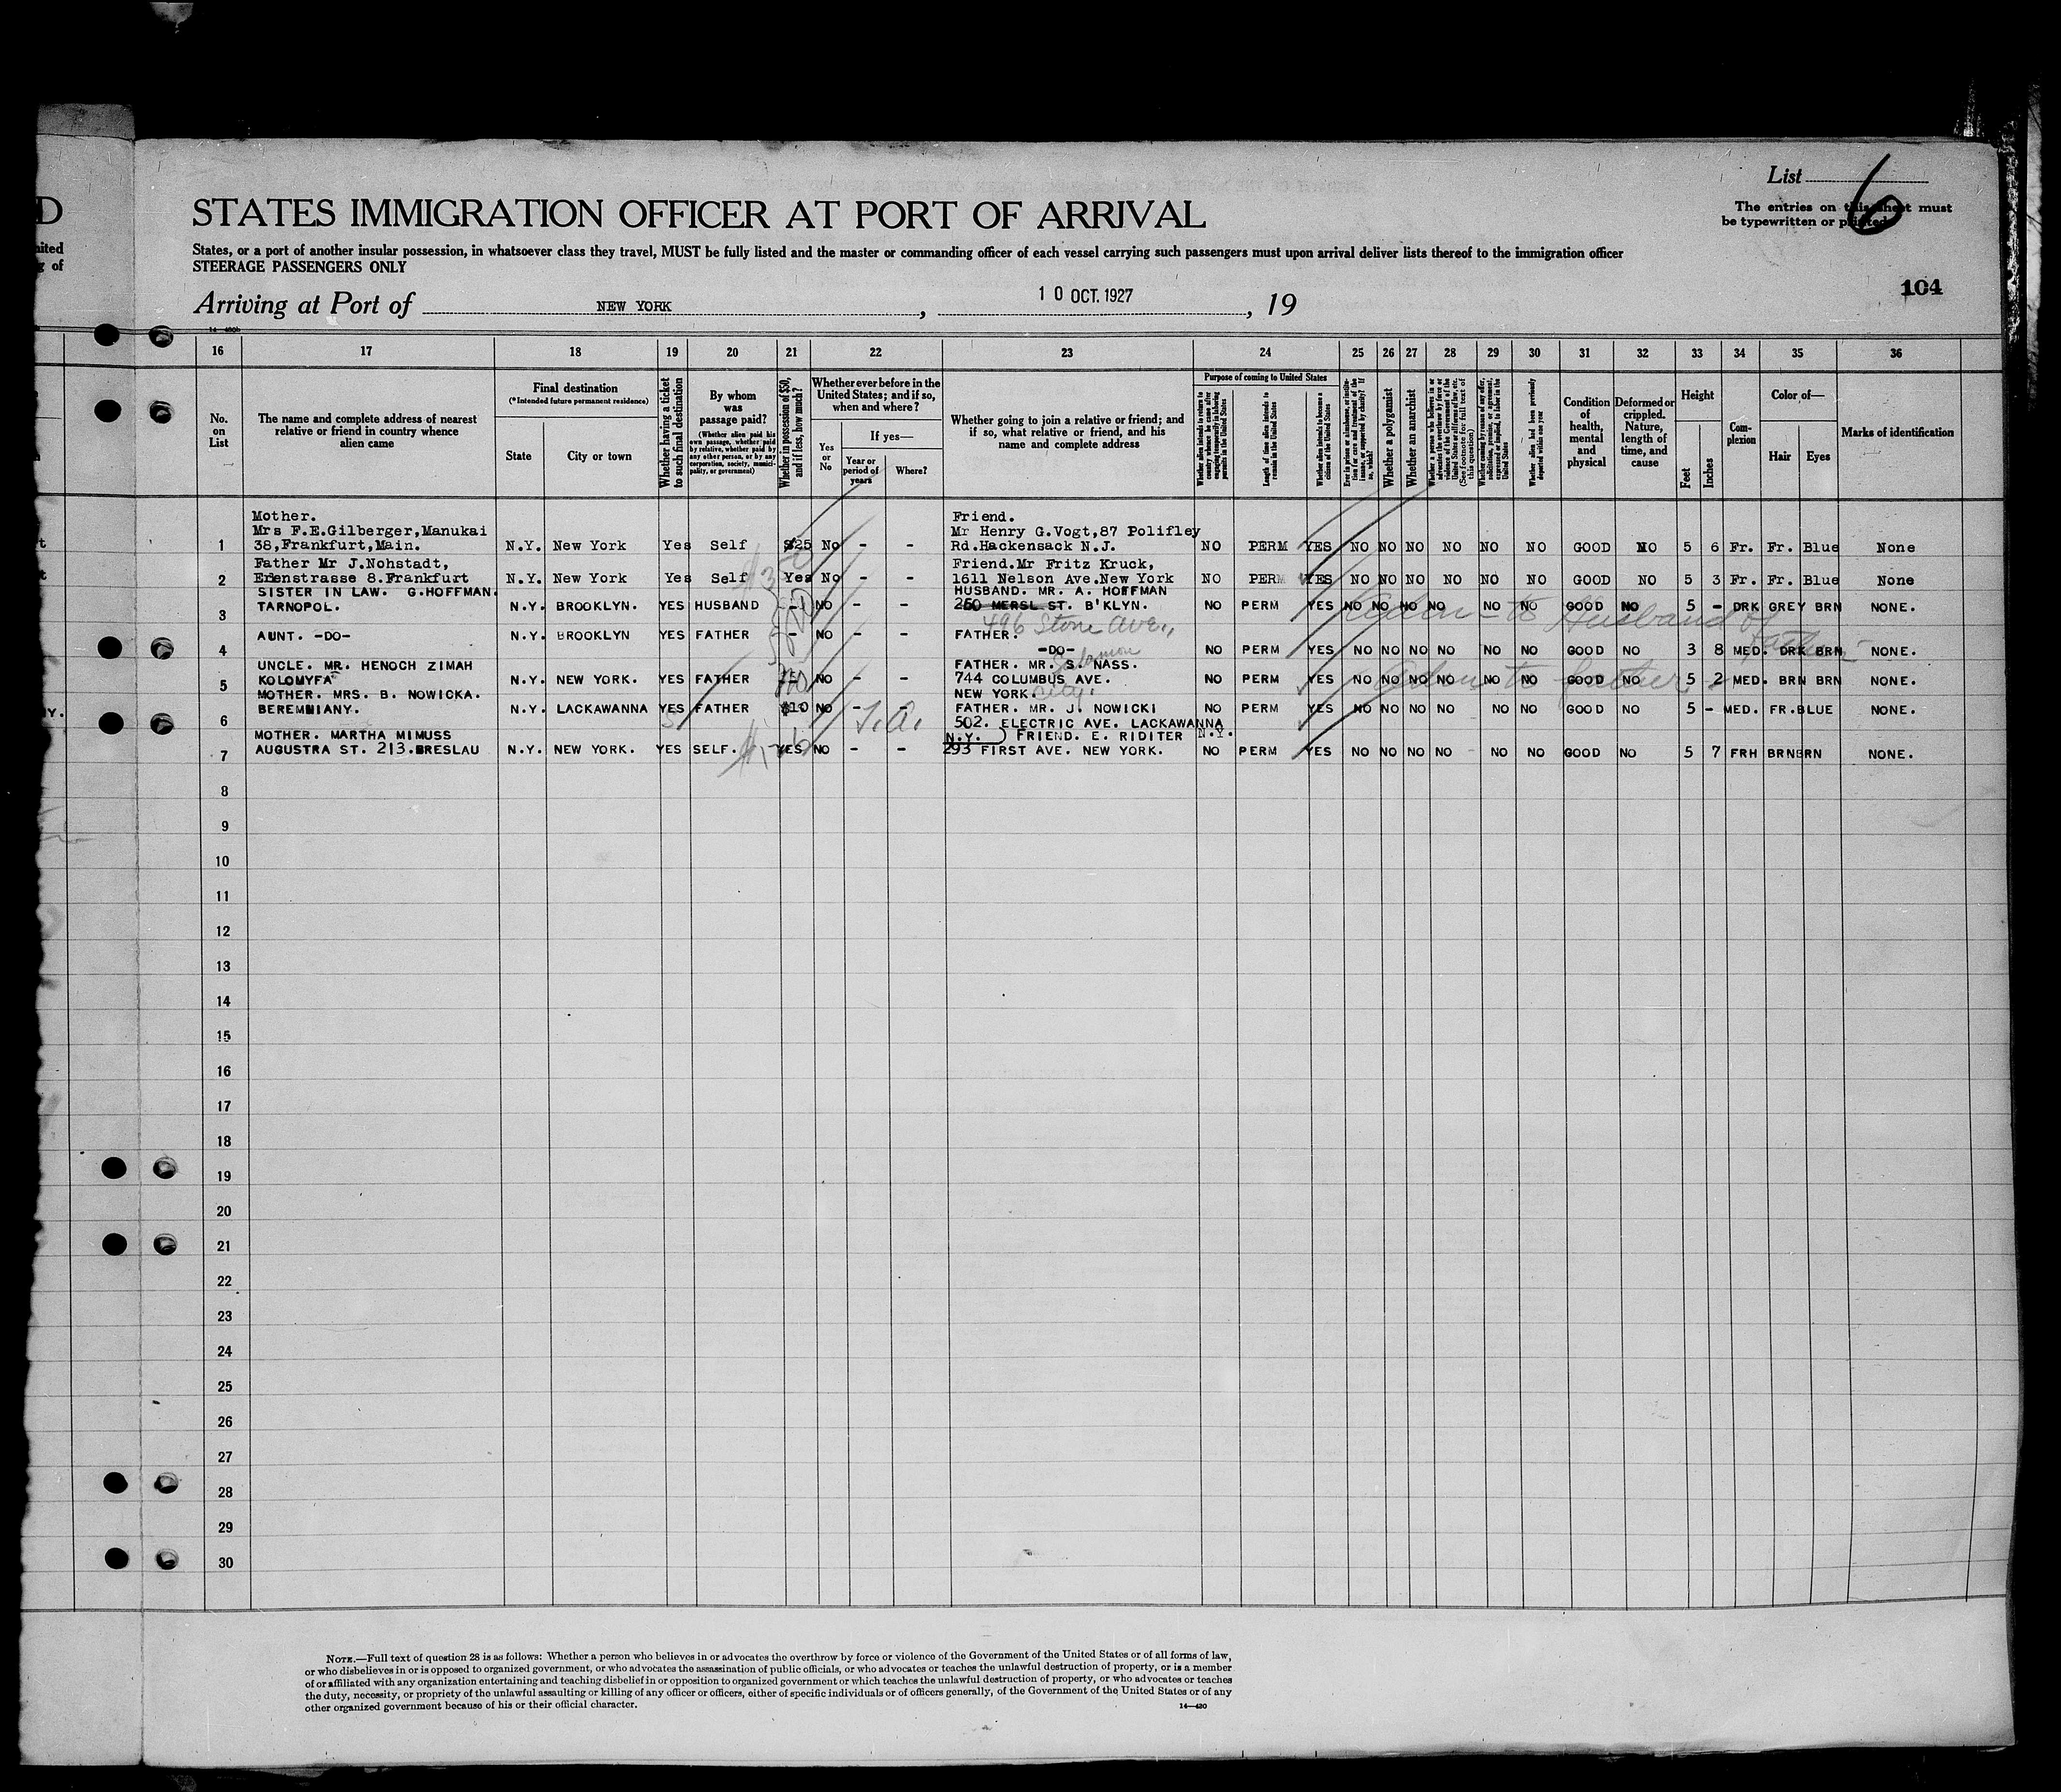 List 6
D
STATES IMMIGRATION OFFICER AT PORT OF ARRIVAL
The entries on this sheet must
be typewritten or printed
States, or a port of another insular possession, in whatsoever class they travel, MUST be fully listed and the master or commanding officer of each vessel carrying such passengers must upon arrival deliver lists thereof to the immigration officer
STEERAGE PASSENGERS ONLY
104
Arriving at Port of NEW YORK, 10 OCT. 1927, 19
16 17 18 19 20 21 22 23 24 25 26 27 28 29 30 31 32 33 34 35 36
No. on List
The name and complete address of nearest relative or friend in country whence alien came
Final destination
(*Intended future permanent residence)
State
City or town
Whether having a ticket to such final destination
By whom was passage paid?
(Whether alien paid his own passage, whether paid by relative, whether paid by any other person, or by any corporation, society, municipality, or government)
Whether in possession of $50, and if less, how much?
Whether ever before in the United States; and if so, when and where?
Yes or No
If yes—
Year or period of years
Where?
Whether going to join a relative or friend; and if so, what relative or friend, and his name and complete address
Purpose of coming to United States
Length of time alien intends to remain in the United States
Whether alien intends to become a citizen of the United States
Whether a polygamist
Whether an anarchist
Whether alien had been previously deported within one year
Condition of health, mental and physical
Deformed or crippled. Nature, length of time, and cause
Height
Feet
Inches
Complexion
Color of—
Hair
Eyes
Marks of identification
Mother.
Mrs F.E.Gilberger,Manukai
1 38,Frankfurt,Main. N.Y. New York Yes Self $25 No - -
Friend.
Mr Henry G.Vogt,87 Polifley
Rd.Hackensack N.J. NO PERM YES NO NO NO NO NO NO GOOD NO 5 6 Fr. Fr. Blue None
Father Mr J.Nohstadt,
2 Erlenstrasse 8.Frankfurt N.Y. New York Yes Self Yes No - -
Friend.Mr Fritz Kruck,
1611 Nelson Ave.New York NO PERM YES NO NO NO NO NO NO GOOD NO 5 3 Fr. Fr. Blue None
SISTER IN LAW. G.HOFFMAN.
3 TARNOPOL. N.Y. BROOKLYN. YES HUSBAND - NO - -
HUSBAND. MR. A. HOFFMAN
260 MERSL ST. B'KLYN. NO PERM YES NO NO NO NO NO NO GOOD NO 5 - DRK GREY BRN NONE.
496 Stone Ave.,
to Husband
4 AUNT. -DO- N.Y. BROOKLYN YES FATHER - NO - -
FATHER.
-DO- NO PERM YES NO NO NO NO NO NO GOOD NO 3 8 MED. DRK BRN NONE.
Solomon
UNCLE. MR. HENOCH ZIMAH
5 KOLOMYFA N.Y. NEW YORK. YES FATHER NO - -
FATHER. MR. S. NASS.
744 COLUMBUS AVE.
NEW YORK. City. NO PERM YES NO NO NO NO NO NO GOOD NO 5 2 MED. BRN BRN NONE.
to father
MOTHER. MRS. B. NOWICKA.
6 BEREMNIANY. N.Y. LACKAWANNA YES FATHER $10 NO - -
FATHER. MR. J. NOWICKI NO PERM YES NO NO NO NO NO NO GOOD NO 5 - MED. FR. BLUE NONE.
502. ELECTRIC AVE. LACKAWANNA
N.Y.
MOTHER. MARTHA MIMUSS
7 AUGUSTRA ST. 213.BRESLAU N.Y. NEW YORK. YES SELF. YES NO - -
N.Y. ) FRIEND. E. RIDITER
293 FIRST AVE. NEW YORK. NO PERM YES NO NO NO NO NO NO GOOD NO 5 7 FRH BRN BRN NONE.
8
9
10
11
12
13
14
15
16
17
18
19
20
21
22
23
24
25
26
27
28
29
30
NOTE.—Full text of question 28 is as follows: Whether a person who believes in or advocates the overthrow by force or violence of the Government of the United States or of all forms of law,
or who disbelieves in or is opposed to organized government, or who advocates the assassination of public officials, or who advocates or teaches the unlawful destruction of property, or is a member
of or affiliated with any organization entertaining and teaching disbelief in or opposition to organized government or which teaches the unlawful destruction of property, or who advocates or teaches
the duty, necessity, or propriety of the unlawful assaulting or killing of any officer or officers, either of specific individuals or of officers generally, of the Government of the United States or of any
other organized government because of his or their official character.
14—420